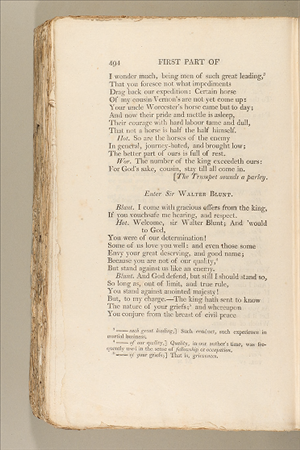 494 FIRST PART OF
I wonder much, being men of such great leading,
That you foresee not what impediments
Drag back our expedition: Certain horse
Of my cousin Vernon's are not yet come up:
Your uncle Worcester's horse came but to day;
And now their pride and mettle is asleep,
Their courage with hard labour tame and dull,
That not a horse is half the half himself.
Hot. So are the horses of the enemy
In general, journey-bated, and brought low;
The better part of ours is full of rest.
Wor. The number of the king exceedeth ours:
For God's sake, cousin, stay till all come in.
[The Trumpet sounds a parley.
Enter Sir WALTER BLUNT.
Blunt. I come with gracious offers from the king,
If you vouchsafe me hearing, and respect.
Hot. Welcome, sir Walter Blunt; And 'would
to God,
You were of our determination!
Some of us love you well: and even those some
Envy your great deserving, and good name;
Because you are not of our quality,
But stand against us like an enemy.
Blunt. And God defend, but still I should stand so,
So long as, out of limit, and true rule,
You stand against anointed majesty!
But, to my charge.—The king hath sent to know
The nature of your griefs; and whereupon
You conjure from the breast of civil peace
—— such great leading,] Such conduct, such experience in
martial business.
—— of our quality,] Quality, in our author's time, was fre-
quently used in the sense of fellowship or occupation.
—— of your griefs;] That is, grievances.